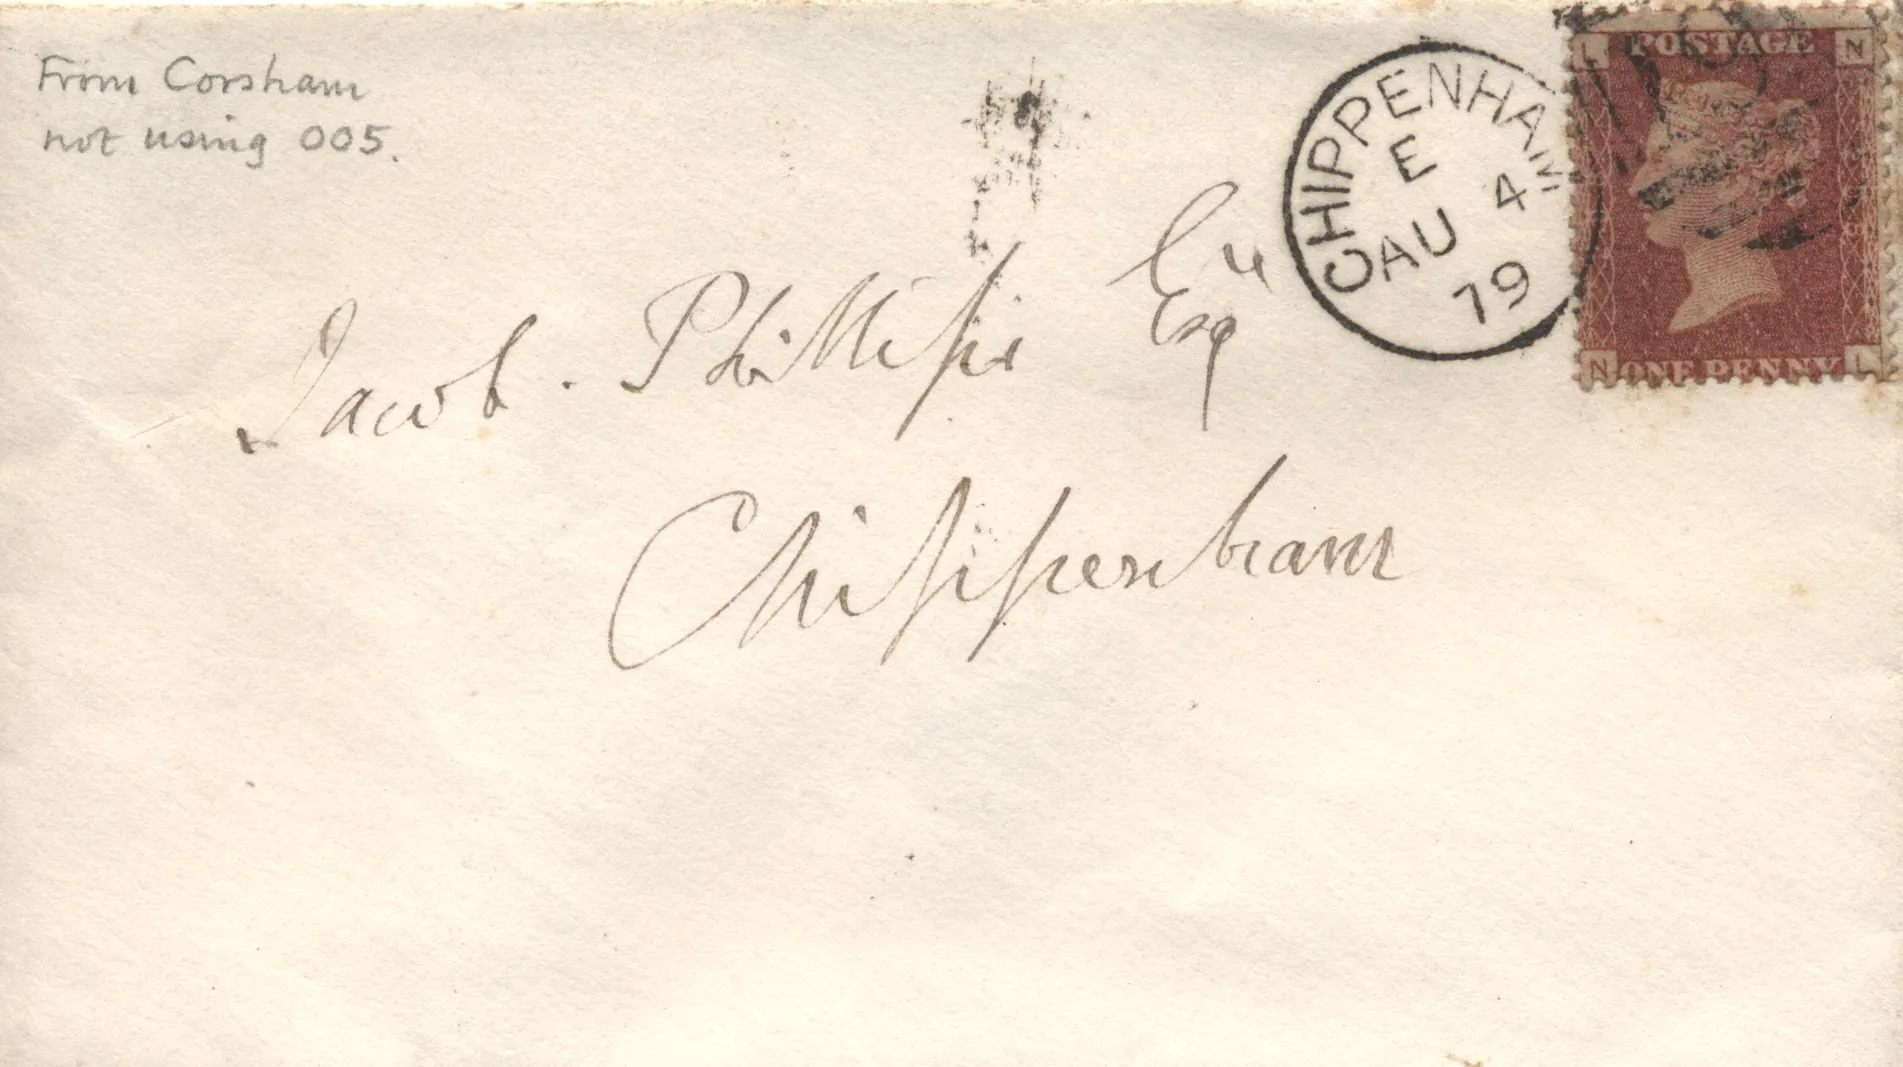 From Corsham
not using 005.
CHIPPENHAM
E
AU 4
79
L POSTAGE N
N ONE PENNY L
Jacob. Phillips
Esq
Chippenham